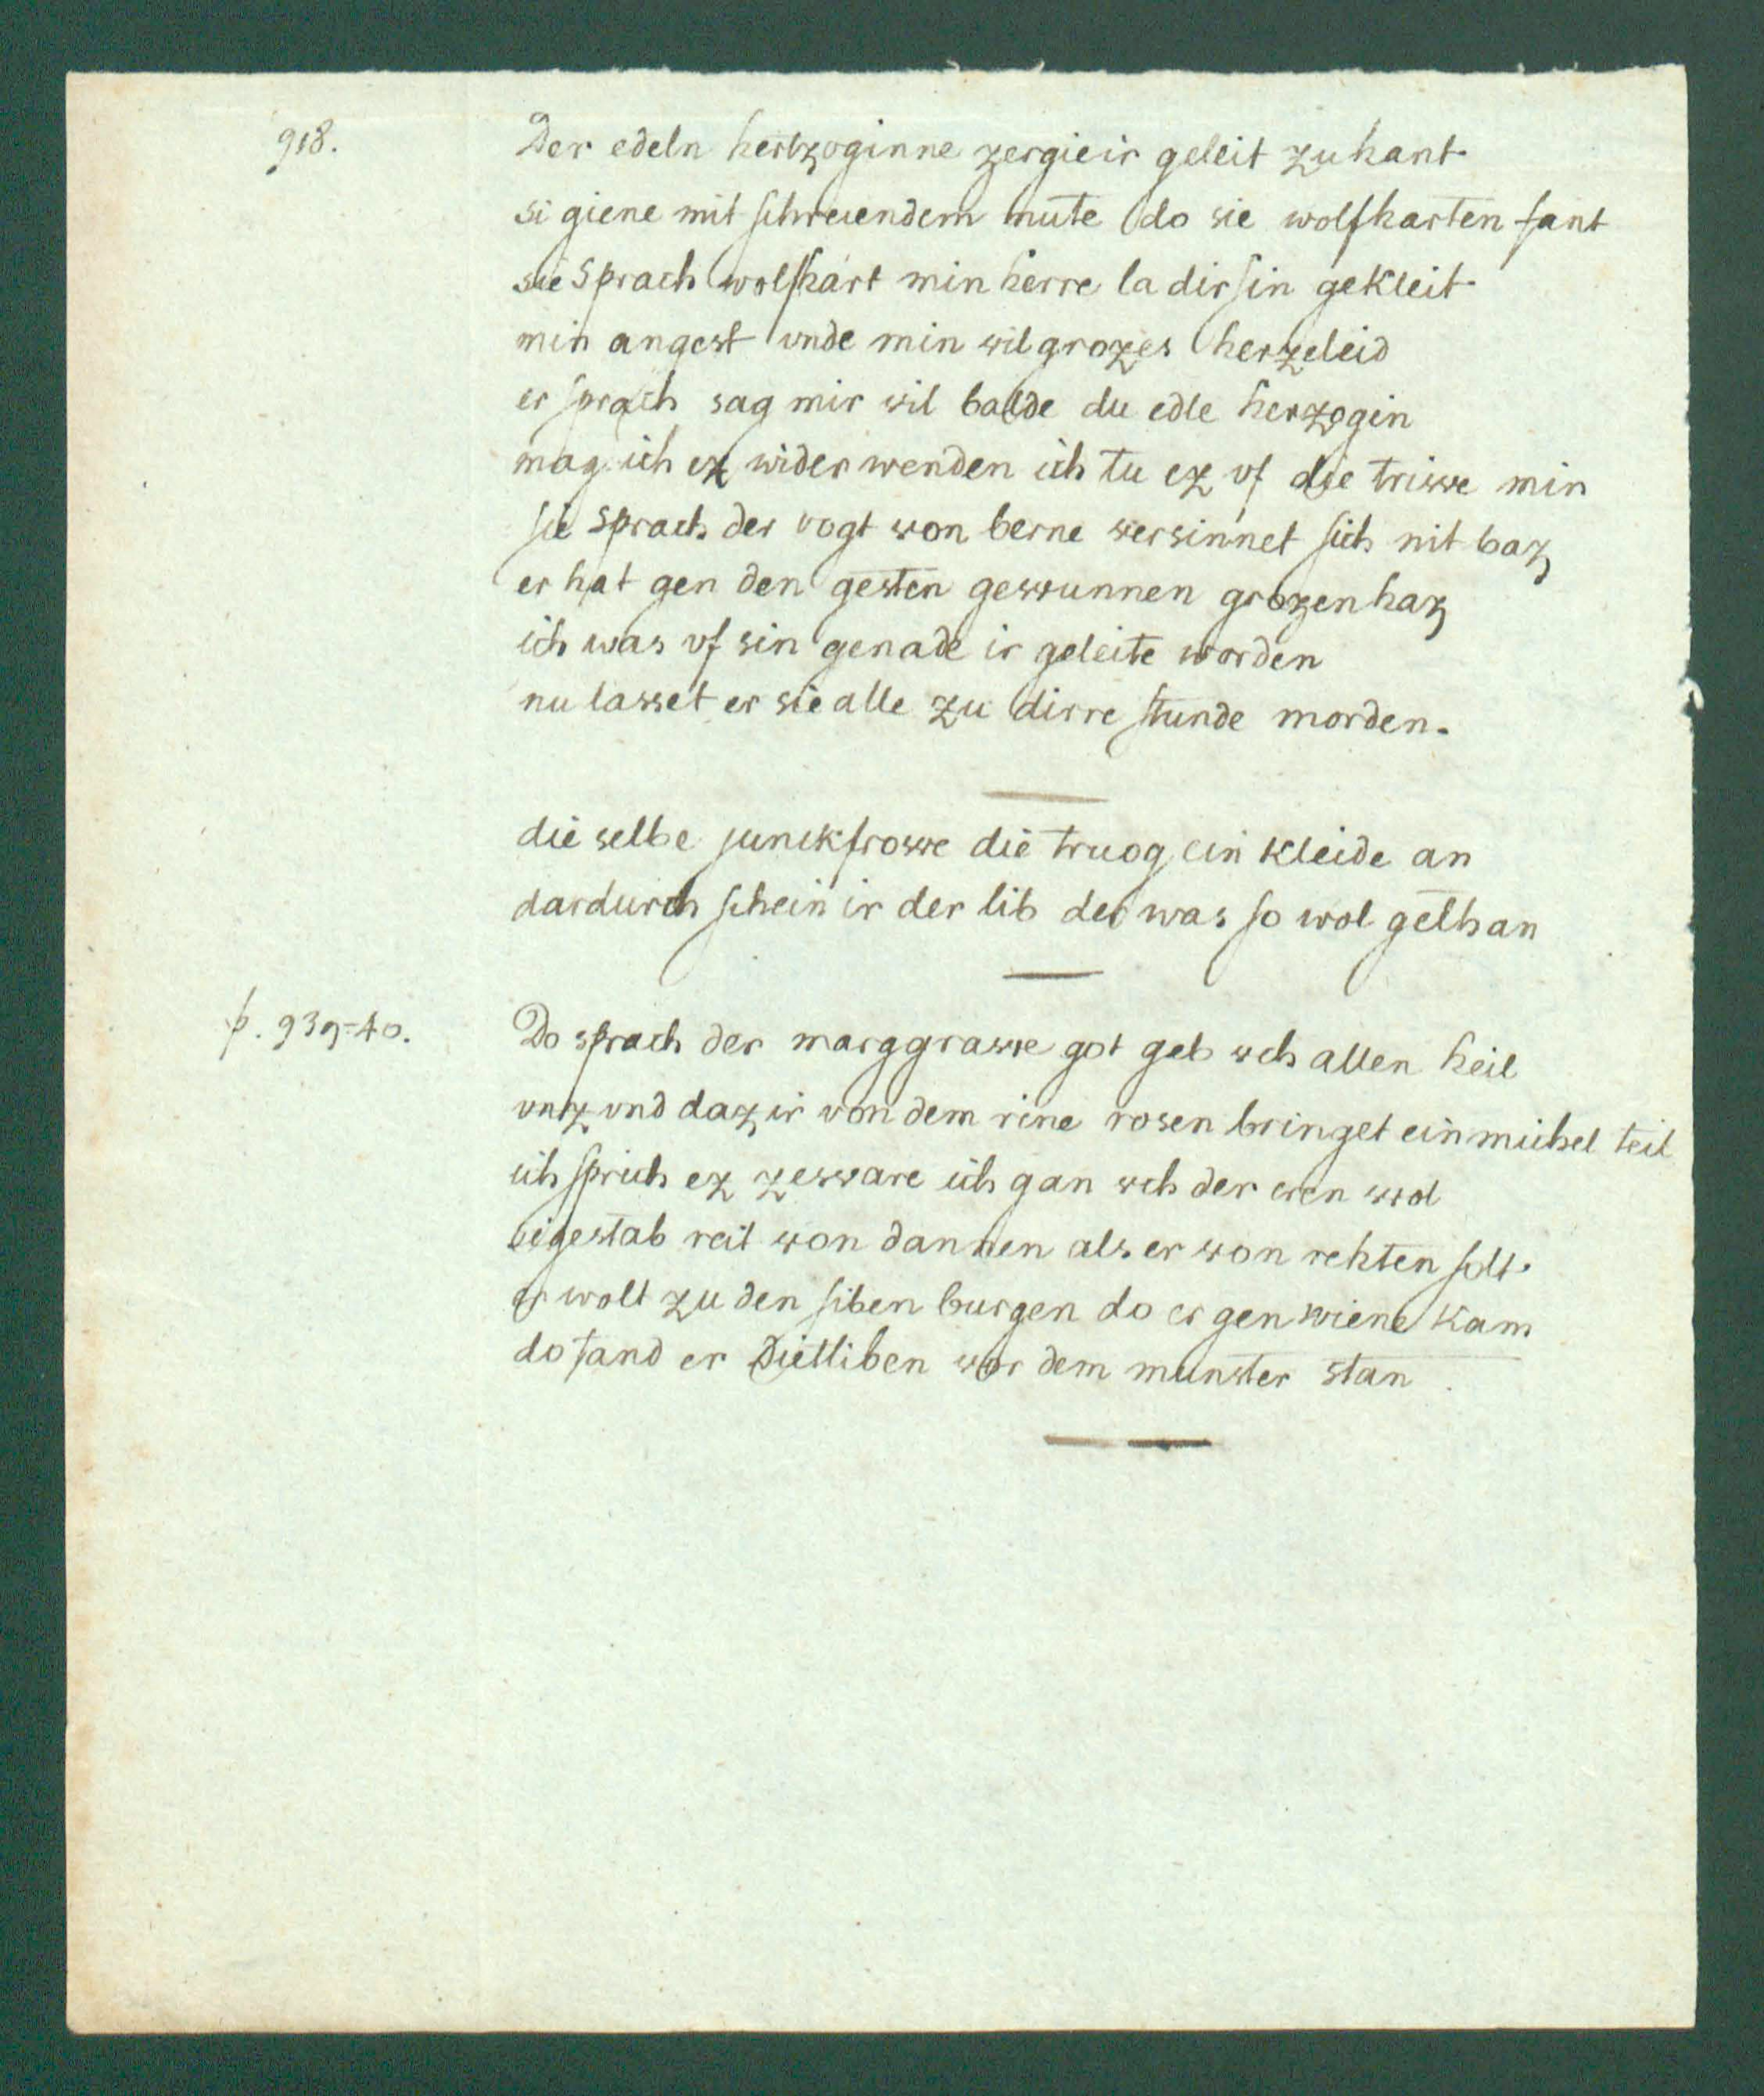 918.
Der edeln hertzoginne zergieir geleit zu hant
si giene mit schreiendem mute do sie wolfharten fant
sie sprach wolfhart min herre la dir sin gekleit
min angest vnde min vil grozes herzeleid
er sprach sag mir vil balde du edle herzogin
mag ich ez wider wenden ich tu ez vf die triwe min
sie sprach der vogt von berne versinnet sich nit baz
er hat gen den gesten gewunnen grozen haz
ich was vf sin genade ir geleite worden
nu lasset er sie alle zu dirre stunde morden.
die selbe junckfrowe die truog ein kleide an
dardurch schein ir der lib der was so wol gethan
p. 939=40.
Do sprach der marggrawe got geb wch allen heil
vnz vnd daz ir von dem rine rosen bringet ein michel teil
ich sprich ez zeware ich gan wch der eren wol
sigestab reit von dannen als er von rehten solt.
er wolt zu den siben burgen do er gen wiene kam
do fand er Dietliben vor dem munster stan.